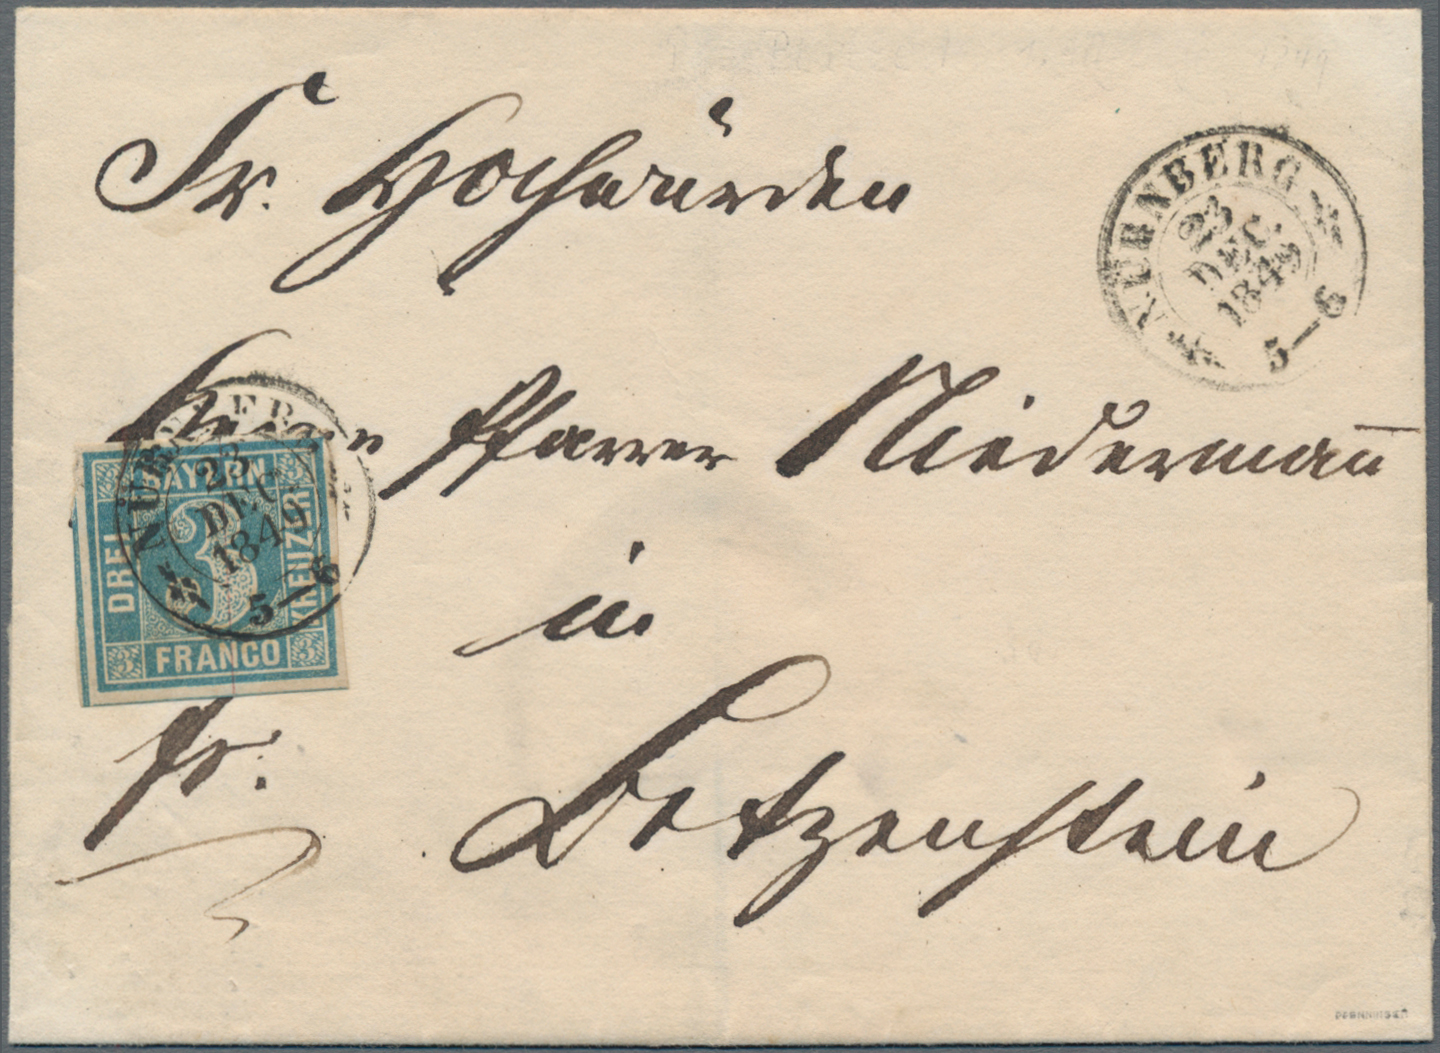 Sr. Hochwürden
NÜRNBERG
23
DEC.
1849
5-6
Herrn Pfarrer Niederman̄
NÜRNBERG
23
DEC.
1849
5-6
BAYERN
DREI
3
KREUZER
3
FRANCO
3
in
fr.
Betzenstein
PFENNINGER